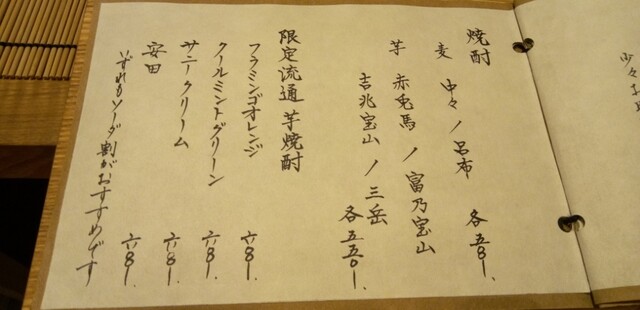 焼酎
麦 中々 / 呂布 各五五〇ー.
芋 赤兎馬 / 富乃宝山
吉兆宝山 / 三岳 各五五〇ー.
限定流通 芋焼酎
フラミンゴオレンジ 六八〇ー.
クールミントグリーン 六八〇ー.
サニークリーム 六八〇ー.
安田 六八〇ー.
いずれもソーダ割がおすすめです
少々